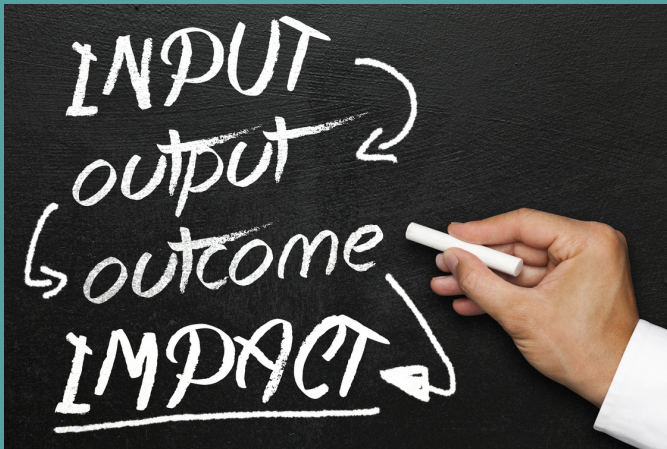 INPUT
output
outcome
IMPACT